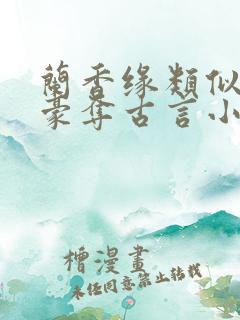 蘭香缘類似
豪奪古言小
檜漫畫
未经同意禁止转载